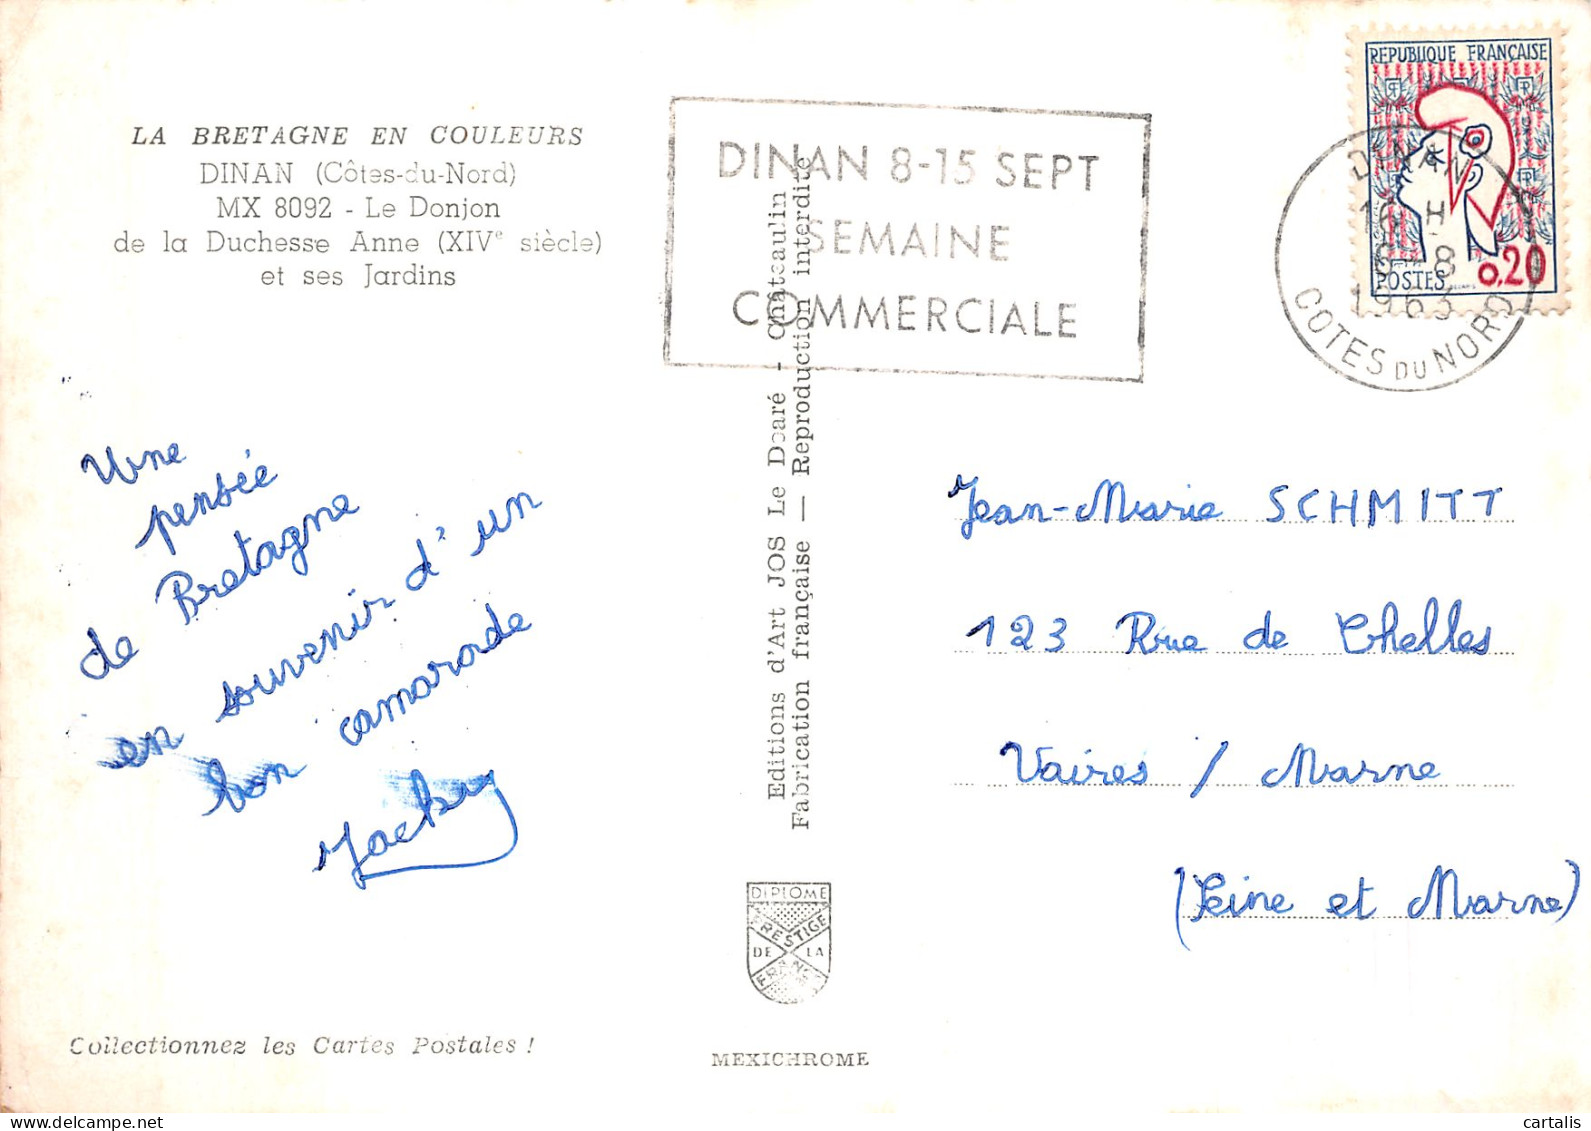 LA BRETAGNE EN COULEURS
DINAN (Côtes-du-Nord)
MX 8092 - Le Donjon
de la Duchesse Anne (XIVe siècle)
et ses Jardins
Une
pensée
de Bretagne
en souvenir d'un
bon camarade
Jacky
Collectionnez les Cartes Postales !
DINAN 8-15 SEPT
SEMAINE
COMMERCIALE
Editions d'Art JOS Le Doaré - Châteaulin
Fabrication française — Reproduction interdite
DIPLOME
PRESTIGE
DE LA
FRANCE
MEXICHROME
REPUBLIQUE FRANÇAISE
POSTES 0,20
DINAN
H
8
1963
COTES DU NORD
Jean-Marie SCHMITT
123 Rue de Chelles
Vaires / Marne
(Seine et Marne)
www.delcampe.net
cartalis